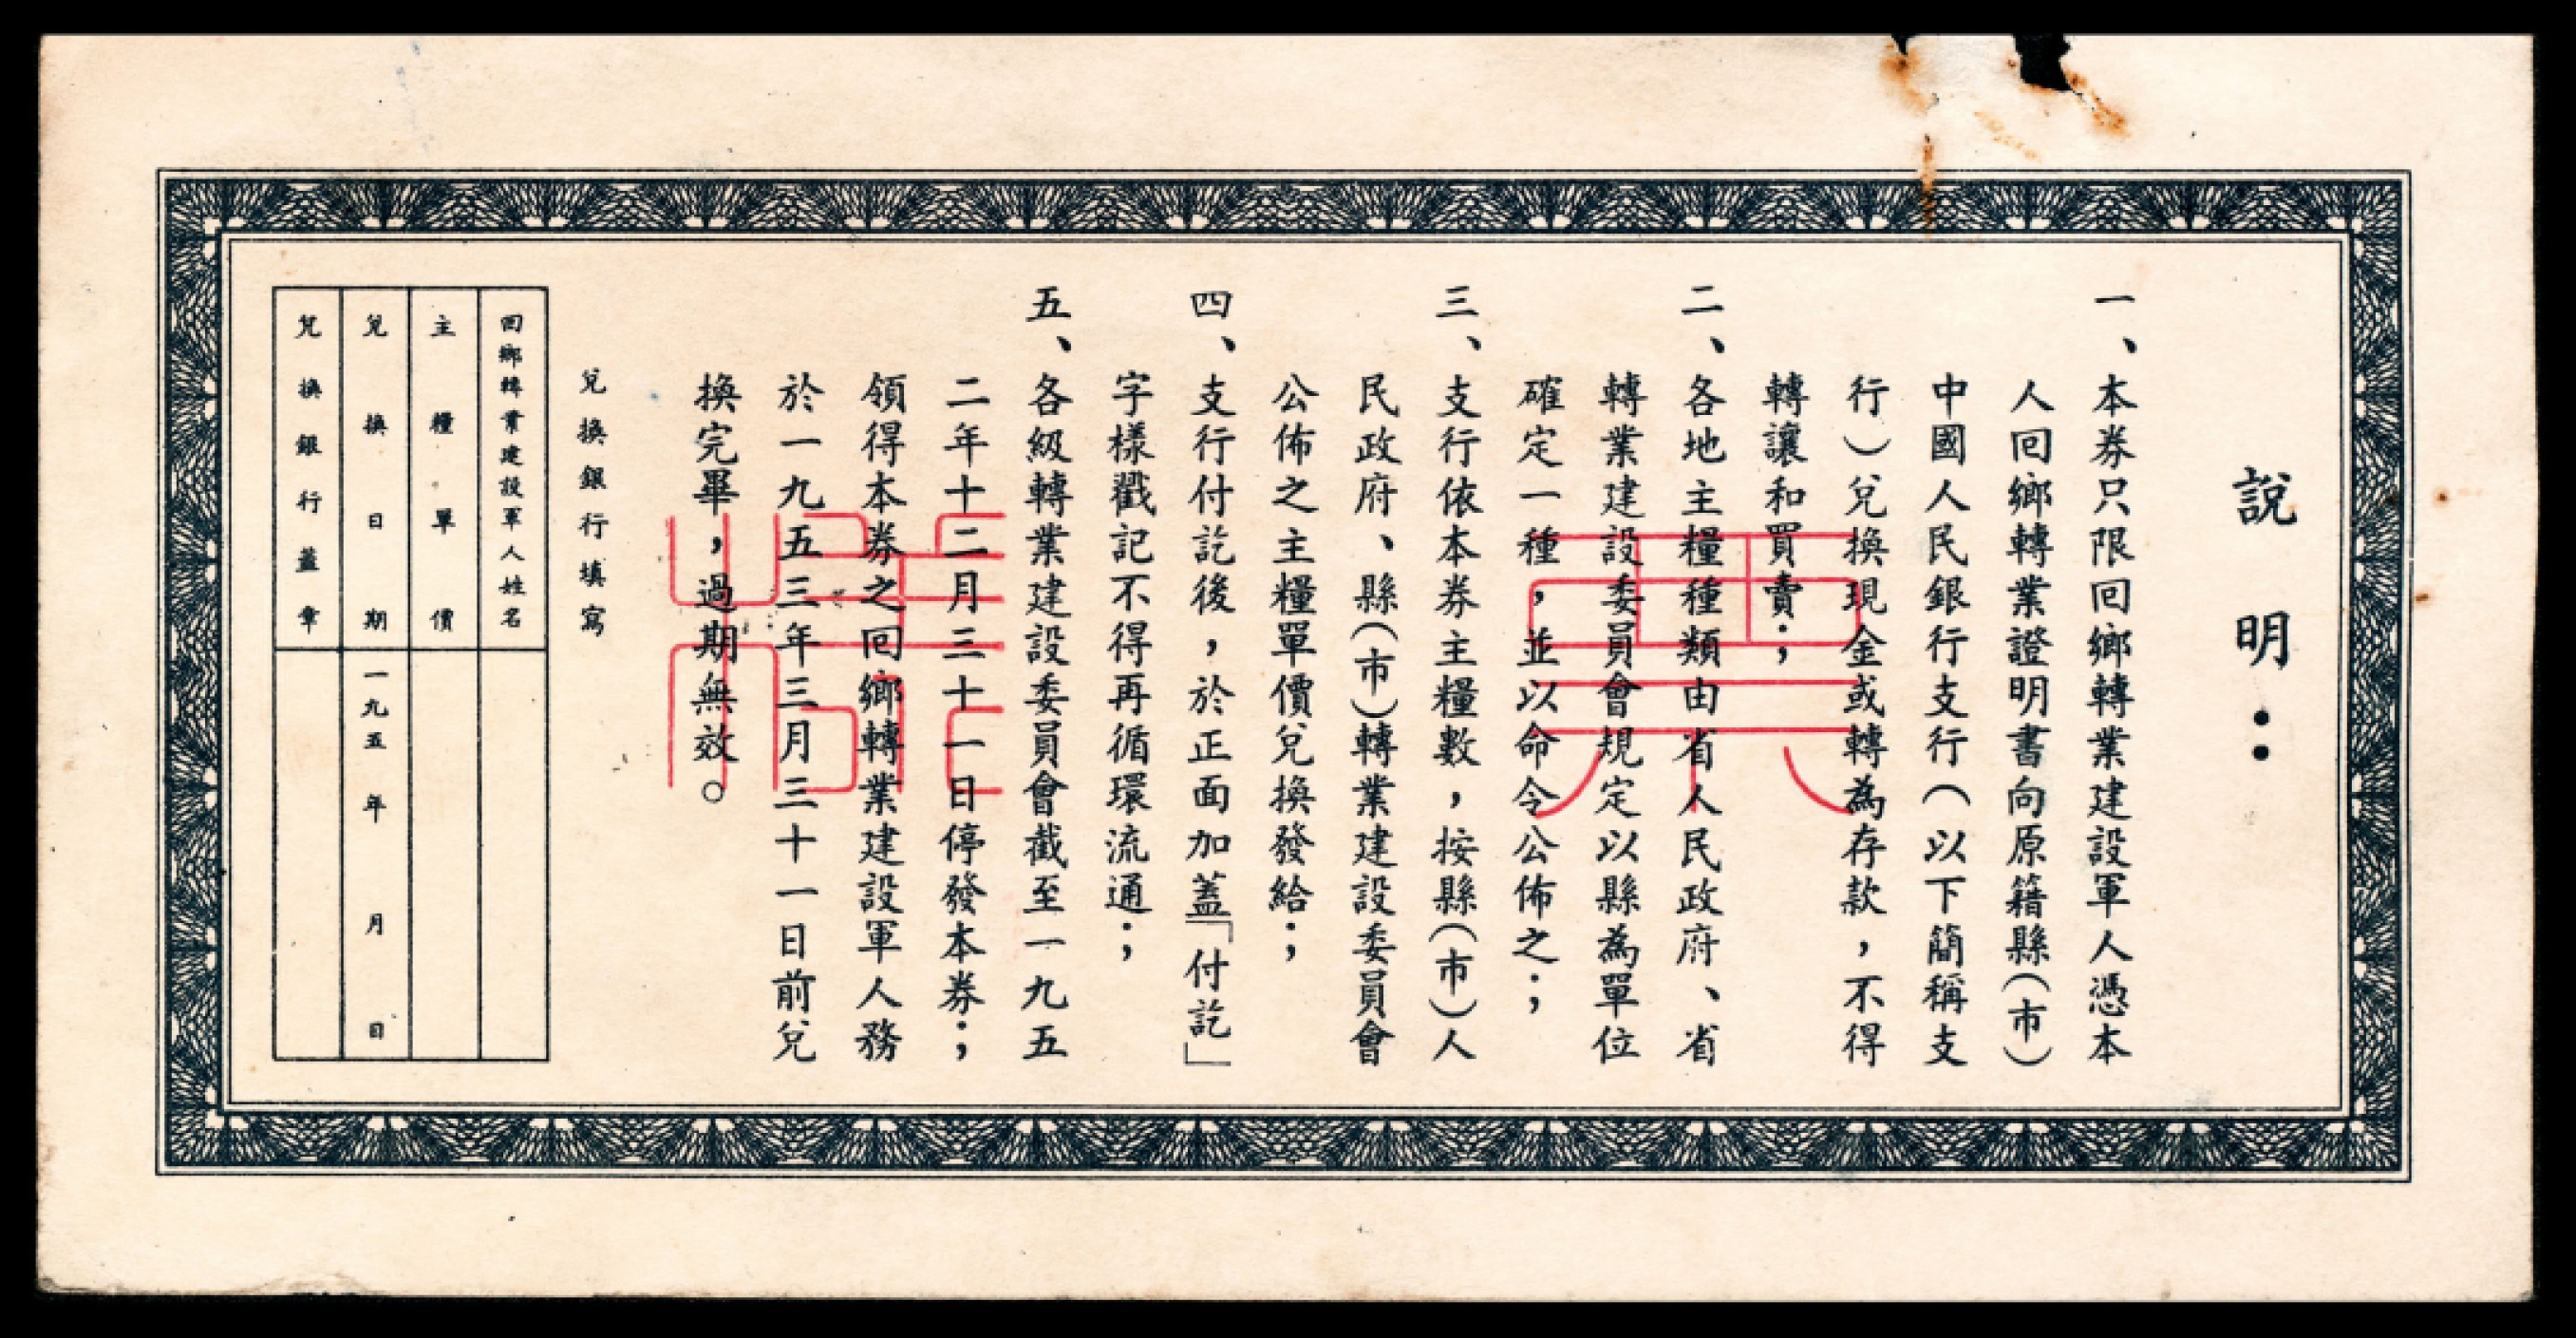 說明：
一、本券只限回鄉轉業建設軍人憑本
人回鄉轉業證明書向原籍縣（市）
中國人民銀行支行（以下簡稱支
行）兌換現金或轉為存款，不得
轉讓和買賣；
二、各地主糧種類由省人民政府、省
轉業建設委員會規定以縣為單位
確定一種，並以命令公佈之；
三、支行依本券主糧數，按縣（市）人
民政府、縣（市）轉業建設委員會
公佈之主糧單價兌換發給；
四、支行付訖後，於正面加蓋「付訖」
字樣戳記不得再循環流通；
五、各級轉業建設委員會截至一九五
二年十二月三十一日停發本券；
領得本券之回鄉轉業建設軍人務
於一九五三年三月三十一日前兌
換完畢，過期無效。
兌換銀行填寫
回鄉轉業建設軍人姓名
主糧單價
兌換日期 一九五 年 月 日
兌換銀行蓋章